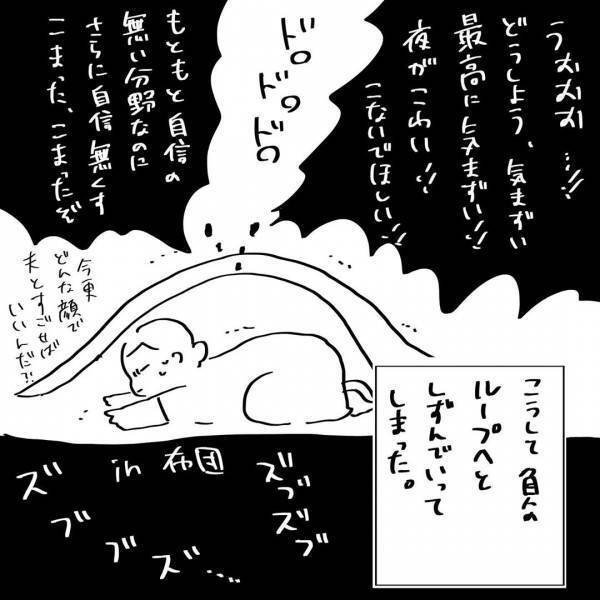 うおおお…!!
どうしよう、気まずい
最高に気まずい!!
夜がこわい!!
こないでほしい!!
ドロ
ドロ
ドロ
もともと自信の
無い分野なのに
さらに自信無くす
こまった、こまったぞ
今更
どんな顔で
夫とすごせば
いいんだ?!
こうして負の
ループへと
しずんでいって
しまった。
in 布団
ズブズブ
ズブブズ…